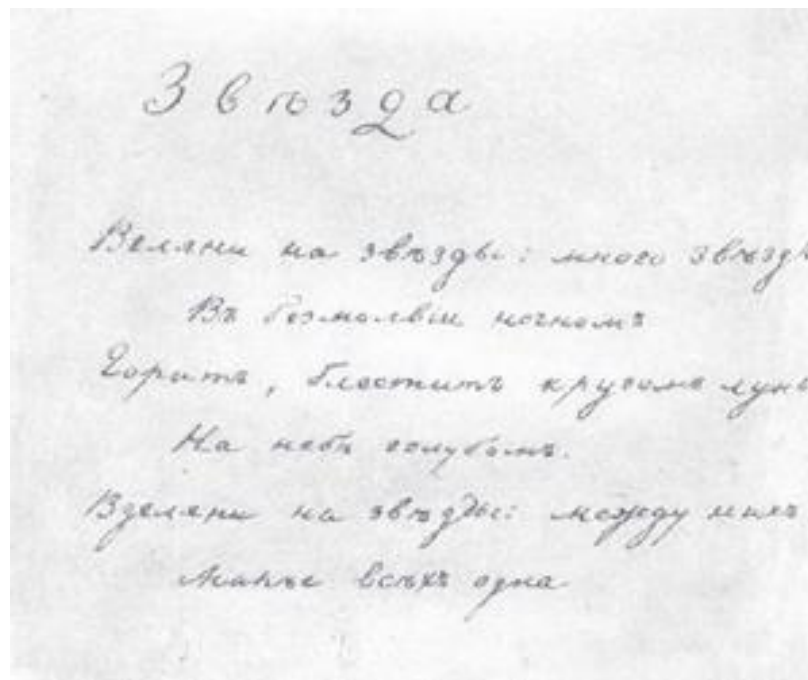 Звѣзда
Взгляни на звѣзды: много звѣздъ
Въ безмолвіи ночномъ
Горитъ, блеститъ кругомъ луны
На небѣ голубомъ.
Взгляни на звѣзды: между нихъ
Милѣе всѣхъ одна